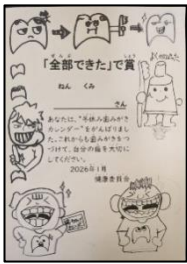 「全部できた」で賞
ねん　くみ
さん
あなたは、"冬休み歯みがき
カレンダー"をがんばりまし
た。これからも歯みがきをつ
づけて、自分の歯を大切に
してください。
2026年1月
健康委員会